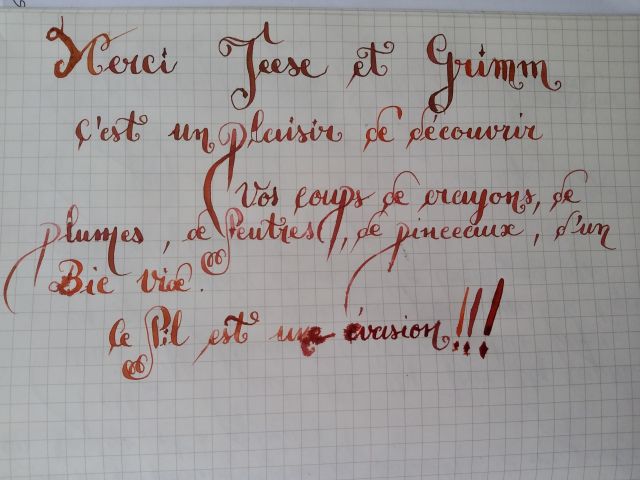 Merci Jeese et Grimm
c'est un plaisir de découvrir
Vos coups de crayons, de
plumes, de feutres, de pinceaux, d'un
Bic vide.
Ce fil est une évasion!!!